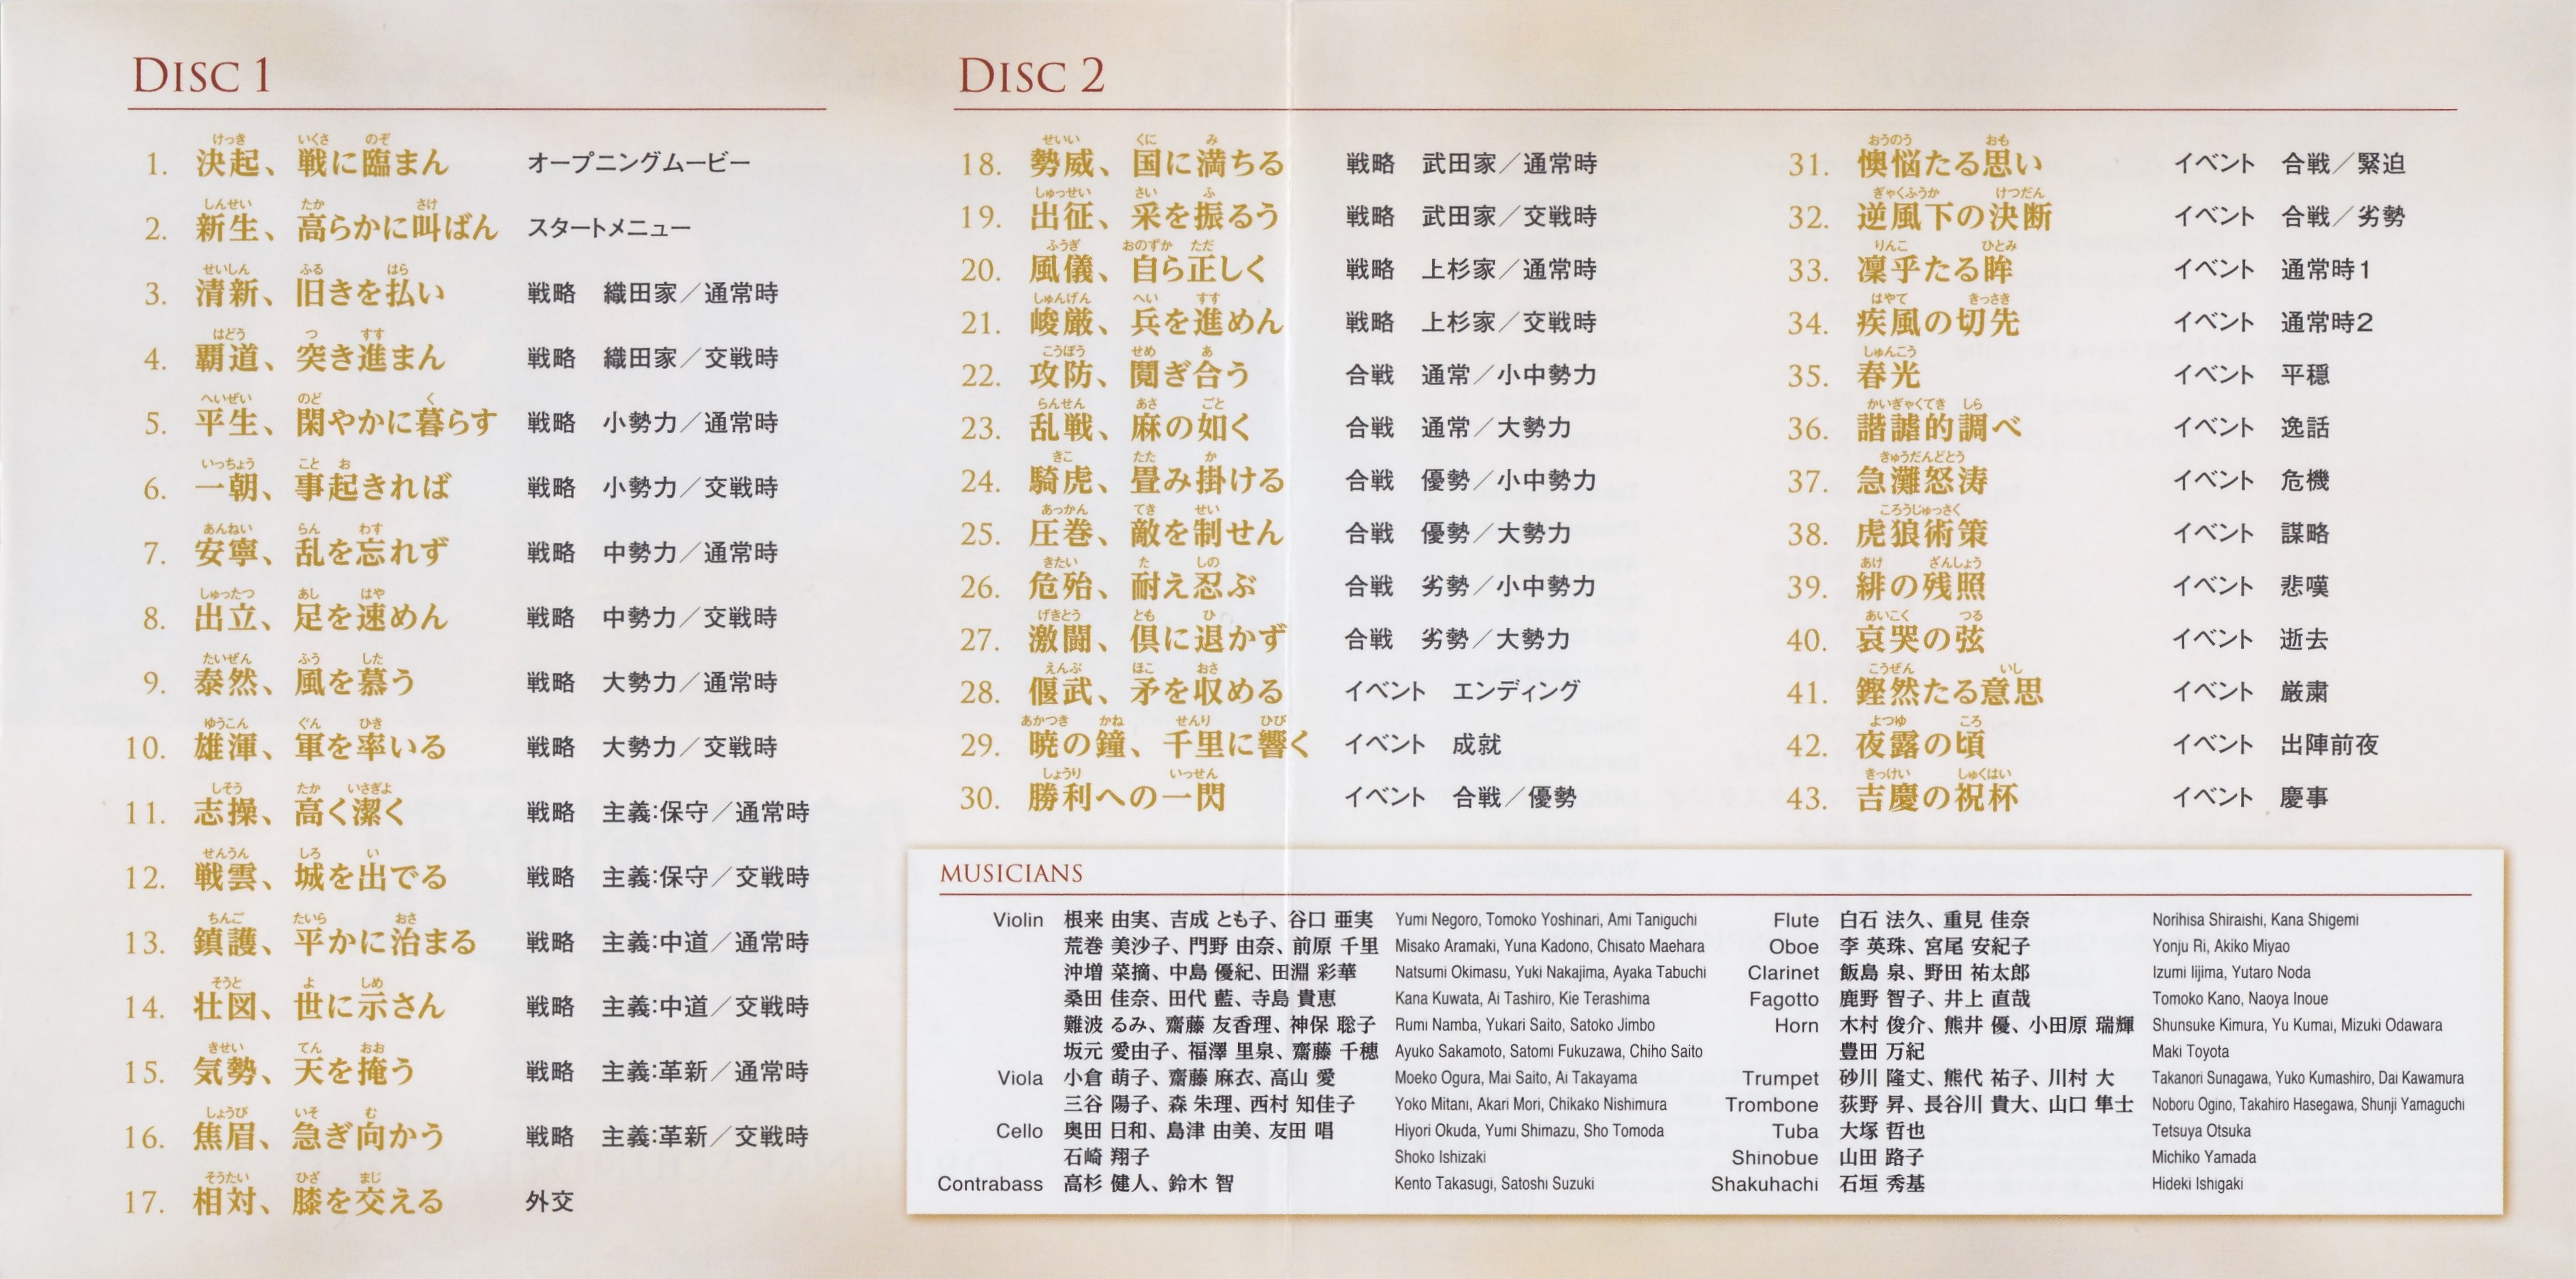 DISC 1
1. 決起、戦に臨まん オープニングムービー
2. 新生、高らかに叫ばん スタートメニュー
3. 清新、旧きを払い 戦略 織田家／通常時
4. 覇道、突き進まん 戦略 織田家／交戦時
5. 平生、閑やかに暮らす 戦略 小勢力／通常時
6. 一朝、事起きれば 戦略 小勢力／交戦時
7. 安寧、乱を忘れず 戦略 中勢力／通常時
8. 出立、足を速めん 戦略 中勢力／交戦時
9. 泰然、風を慕う 戦略 大勢力／通常時
10. 雄渾、軍を率いる 戦略 大勢力／交戦時
11. 志操、高く潔く 戦略 主義:保守／通常時
12. 戦雲、城を出でる 戦略 主義:保守／交戦時
13. 鎮護、平かに治まる 戦略 主義:中道／通常時
14. 壮図、世に示さん 戦略 主義:中道／交戦時
15. 気勢、天を掩う 戦略 主義:革新／通常時
16. 焦眉、急ぎ向かう 戦略 主義:革新／交戦時
17. 相対、膝を交える 外交
DISC 2
18. 勢威、国に満ちる 戦略 武田家／通常時
19. 出征、采を振るう 戦略 武田家／交戦時
20. 風儀、自ら正しく 戦略 上杉家／通常時
21. 峻厳、兵を進めん 戦略 上杉家／交戦時
22. 攻防、鬩ぎ合う 合戦 通常／小中勢力
23. 乱戦、麻の如く 合戦 通常／大勢力
24. 騎虎、畳み掛ける 合戦 優勢／小中勢力
25. 圧巻、敵を制せん 合戦 優勢／大勢力
26. 危殆、耐え忍ぶ 合戦 劣勢／小中勢力
27. 激闘、倶に退かず 合戦 劣勢／大勢力
28. 偃武、矛を収める イベント エンディング
29. 暁の鐘、千里に響く イベント 成就
30. 勝利への一閃 イベント 合戦／優勢
31. 懊悩たる思い イベント 合戦／緊迫
32. 逆風下の決断 イベント 合戦／劣勢
33. 凜乎たる眸 イベント 通常時1
34. 疾風の切先 イベント 通常時2
35. 春光 イベント 平穏
36. 諧謔的調べ イベント 逸話
37. 急灘怒涛 イベント 危機
38. 虎狼術策 イベント 謀略
39. 緋の残照 イベント 悲嘆
40. 哀哭の弦 イベント 逝去
41. 鏗然たる意思 イベント 厳粛
42. 夜露の頃 イベント 出陣前夜
43. 吉慶の祝杯 イベント 慶事
MUSICIANS
Violin 根来 由実、吉成 とも子、谷口 亜実 Yumi Negoro, Tomoko Yoshinari, Ami Taniguchi
荒巻 美沙子、門野 由奈、前原 千里 Misako Aramaki, Yuna Kadono, Chisato Maehara
沖増 菜摘、中島 優紀、田淵 彩華 Natsumi Okimasu, Yuki Nakajima, Ayaka Tabuchi
桑田 佳奈、田代 藍、寺島 貴恵 Kana Kuwata, Ai Tashiro, Kie Terashima
難波 るみ、齋藤 友香理、神保 聡子 Rumi Namba, Yukari Saito, Satoko Jimbo
坂元 愛由子、福澤 里泉、齋藤 千穂 Ayuko Sakamoto, Satomi Fukuzawa, Chiho Saito
Viola 小倉 萌子、齋藤 麻衣、高山 愛 Moeko Ogura, Mai Saito, Ai Takayama
三谷 陽子、森 朱理、西村 知佳子 Yoko Mitani, Akari Mori, Chikako Nishimura
Cello 奥田 日和、島津 由美、友田 唱 Hiyori Okuda, Yumi Shimazu, Sho Tomoda
石崎 翔子 Shoko Ishizaki
Contrabass 高杉 健人、鈴木 智 Kento Takasugi, Satoshi Suzuki
Flute 白石 法久、重見 佳奈 Norihisa Shiraishi, Kana Shigemi
Oboe 李 英珠、宮尾 安紀子 Yonju Ri, Akiko Miyao
Clarinet 飯島 泉、野田 祐太郎 Izumi Iijima, Yutaro Noda
Fagotto 鹿野 智子、井上 直哉 Tomoko Kano, Naoya Inoue
Horn 木村 俊介、熊井 優、小田原 瑞輝 Shunsuke Kimura, Yu Kumai, Mizuki Odawara
豊田 万紀 Maki Toyota
Trumpet 砂川 隆丈、熊代 祐子、川村 大 Takanori Sunagawa, Yuko Kumashiro, Dai Kawamura
Trombone 荻野 昇、長谷川 貴大、山口 隼士 Noboru Ogino, Takahiro Hasegawa, Shunji Yamaguchi
Tuba 大塚 哲也 Tetsuya Otsuka
Shinobue 山田 路子 Michiko Yamada
Shakuhachi 石垣 秀基 Hideki Ishigaki